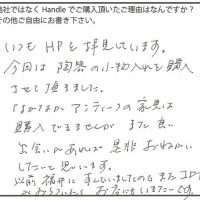 他社ではなく Handle でご購入頂いたご理由はなんですか?
その他ご自由にお書き下さい。
いつも HPを拝見しています。
今回は 陶器の小物入れを購入
させて頂きました。
なかなか アンティークの家具は
購入できませんが また良い
出会いがあれば 是非 おねがい
したいと思います。
以前 福井に すんでいましたので また コロナ
がおちついたら お店にも いきたいです。